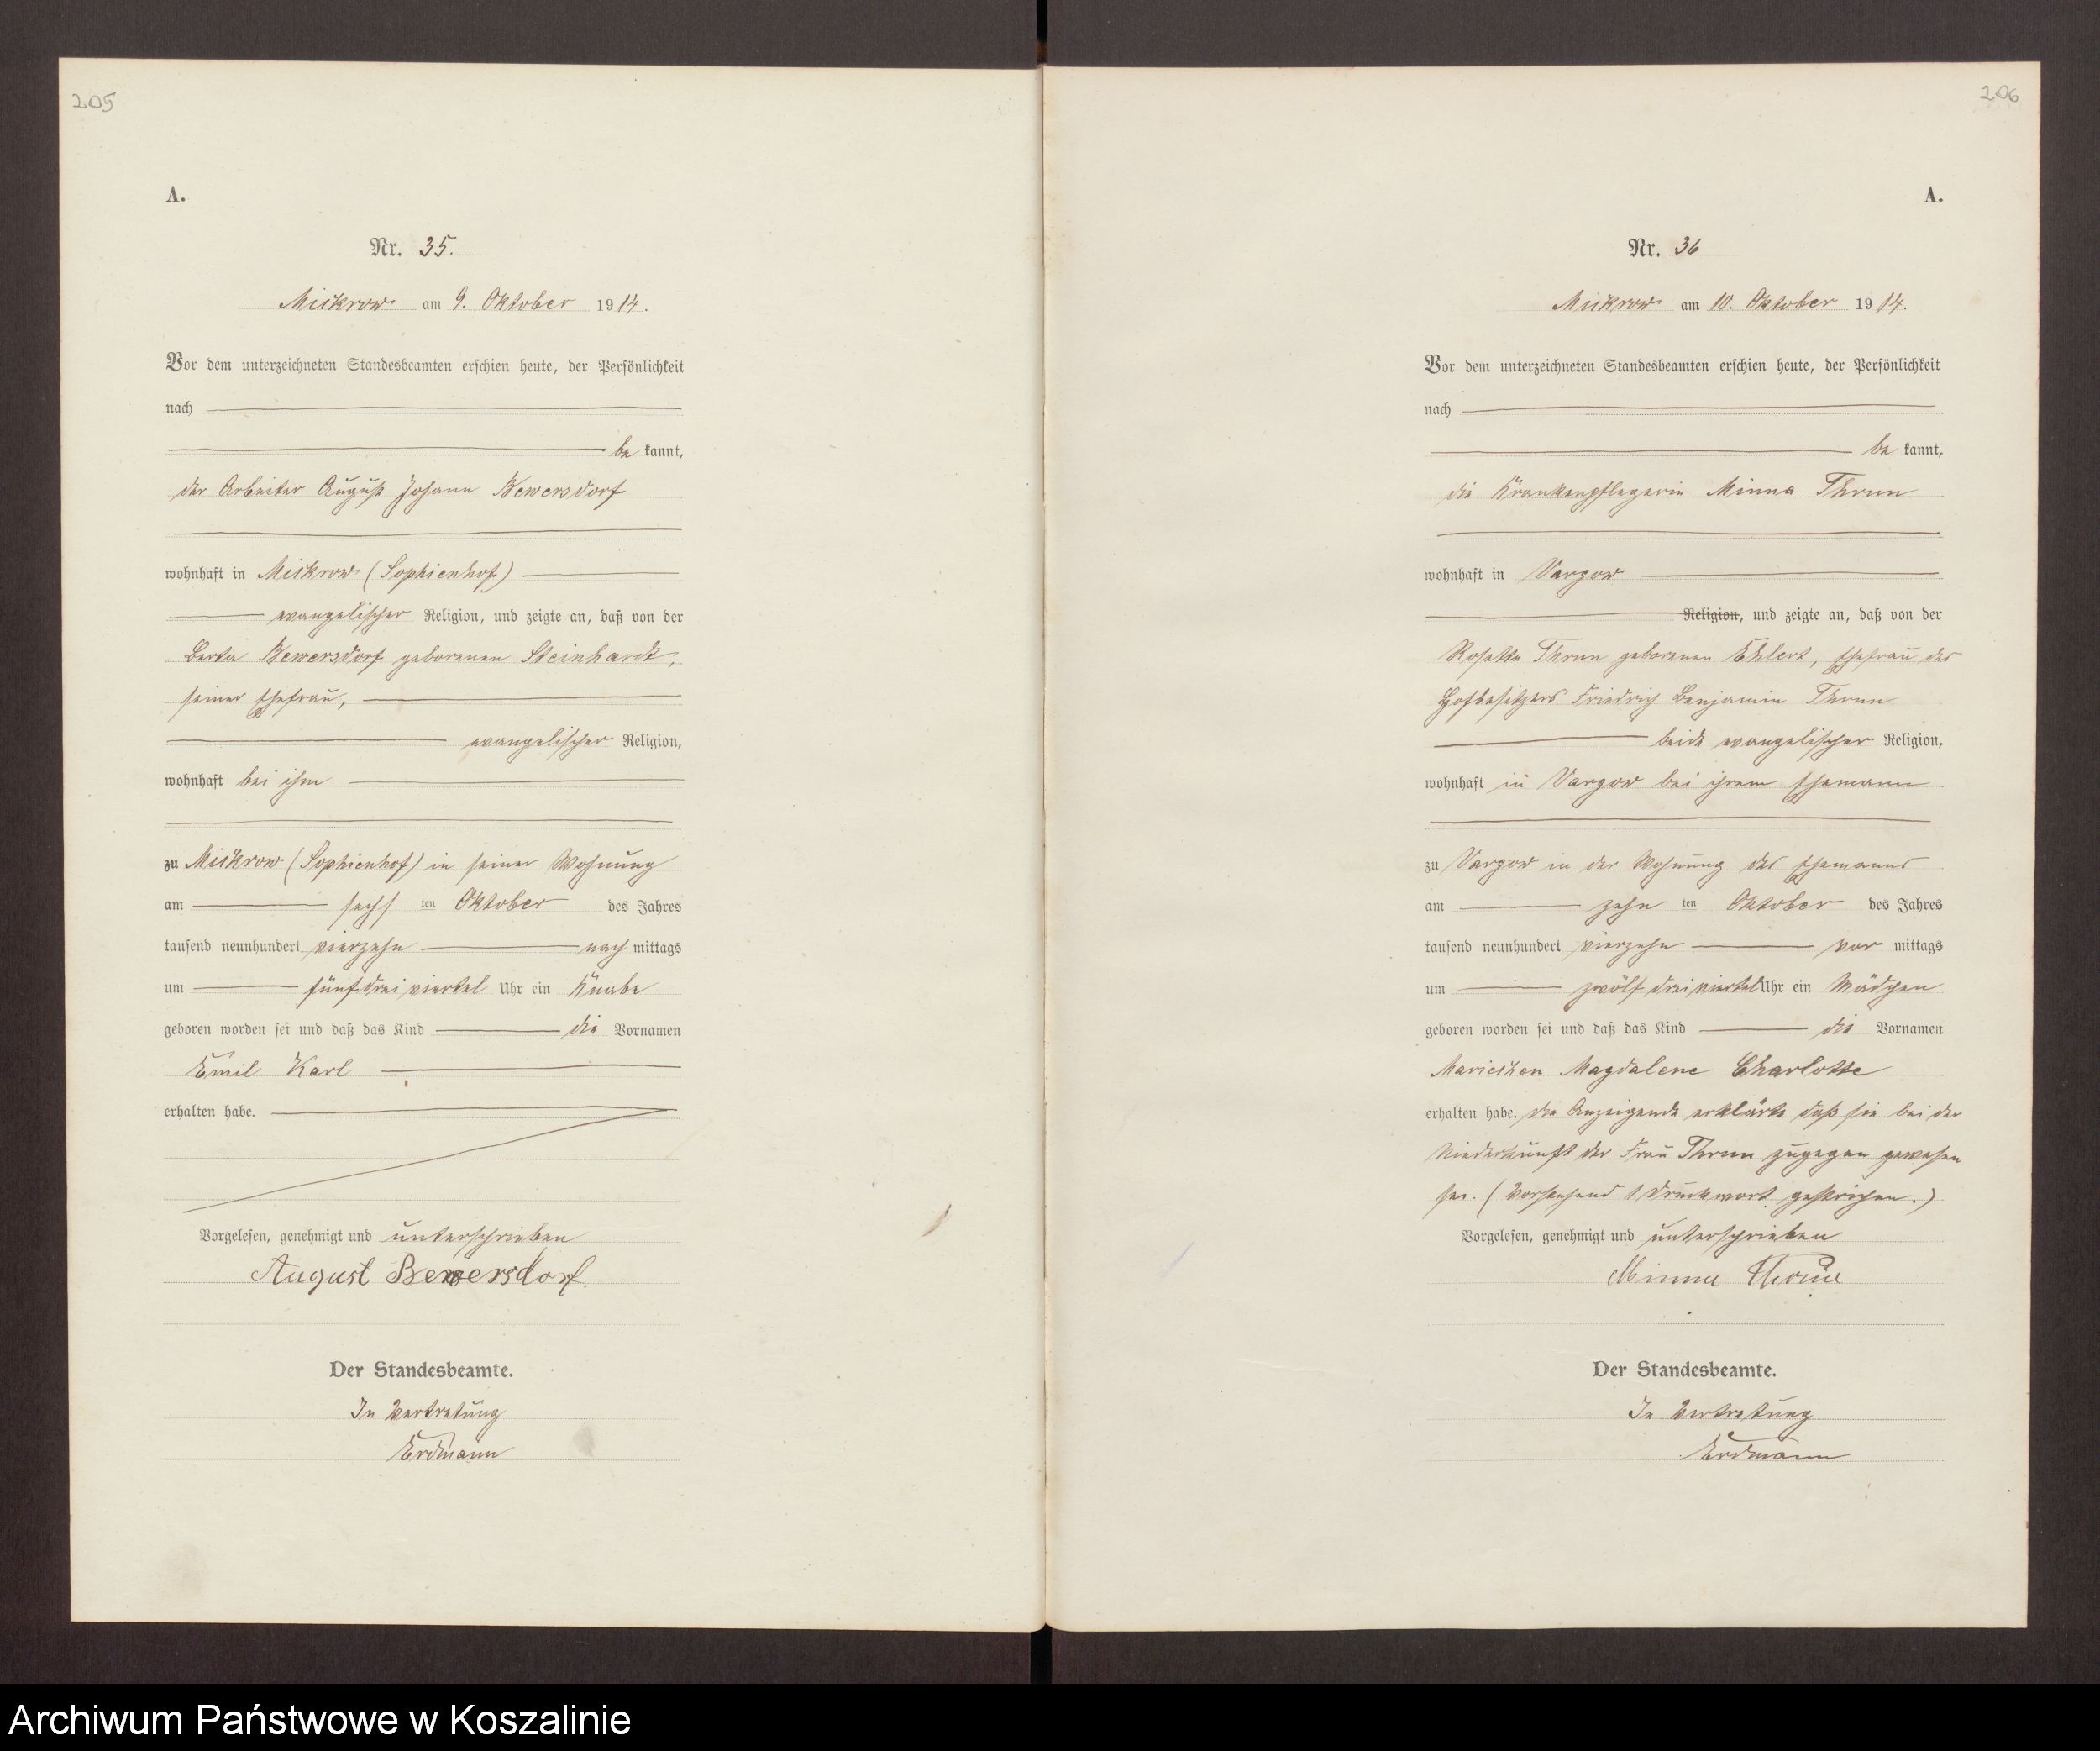 205
A.
Nr. 35.
Mickrow am 9. Oktober 1914.
Vor dem unterzeichneten Standesbeamten erschien heute, der Persönlichkeit
nach
be kannt,
der Arbeiter August Johann Bewersdorf
wohnhaft in Mickrow (Sophienhof)
evangelischer Religion, und zeigte an, daß von der
Berta Bewersdorf geborenen Steinhardt,
seiner Ehefrau,
evangelischer Religion,
wohnhaft bei ihm
zu Mickrow (Sophienhof) in seiner Wohnung
am sechs ten Oktober des Jahres
tausend neunhundert vierzehn nach mittags
um fünf drei viertel Uhr ein Knabe
geboren worden sei und daß das Kind die Vornamen
Emil Karl
erhalten habe.
Vorgelesen, genehmigt und unterschrieben
August Bewersdorf
Der Standesbeamte.
In Vertretung
Erdmann
206
A.
Nr. 36
Mickrow am 10. Oktober 1914.
Vor dem unterzeichneten Standesbeamten erschien heute, der Persönlichkeit
nach
be kannt,
die Krankenpflegerin Minna Thrun
wohnhaft in Vargow
Religion, und zeigte an, daß von der
Rosette Thrun geborenen Ehlert, Ehefrau des
Hofbesitzers Friedrich Benjamin Thrun
beide evangelischer Religion,
wohnhaft in Vargow bei ihrem Ehemann
zu Vargow in der Wohnung des Ehemanns
am zehn ten Oktober des Jahres
tausend neunhundert vierzehn vor mittags
um zwölf drei viertel Uhr ein Mädchen
geboren worden sei und daß das Kind die Vornamen
Mariechen Magdalene Charlotte
erhalten habe. Die Anzeigende erklärte daß sie bei der
Niederkunft der Frau Thrun zugegen gewesen
sei. (Vorstehend 1 Druckwort gestrichen.)
Vorgelesen, genehmigt und unterschrieben
Minna Thrun
Der Standesbeamte.
In Vertretung
Erdmann
Archiwum Państwowe w Koszalinie